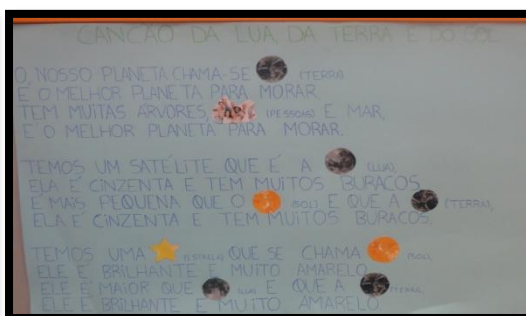 CANÇÃO DA LUA, DA TERRA E DO SOL
O NOSSO PLANETA CHAMA-SE (TERRA)
É O MELHOR PLANETA PARA MORAR.
TEM MUITAS ÁRVORES, (PESSOAS) E MAR,
É O MELHOR PLANETA PARA MORAR.
TEMOS UM SATÉLITE QUE É A (LUA),
ELA É CINZENTA E TEM MUITOS BURACOS
É MAIS PEQUENA QUE O (SOL) E QUE A (TERRA),
ELA É CINZENTA E TEM MUITOS BURACOS.
TEMOS UMA (ESTRELA) QUE SE CHAMA (SOL),
ELE É BRILHANTE E MUITO AMARELO.
ELE É MAIOR QUE (LUA) E QUE A (TERRA),
ELE É BRILHANTE E MUITO AMARELO.